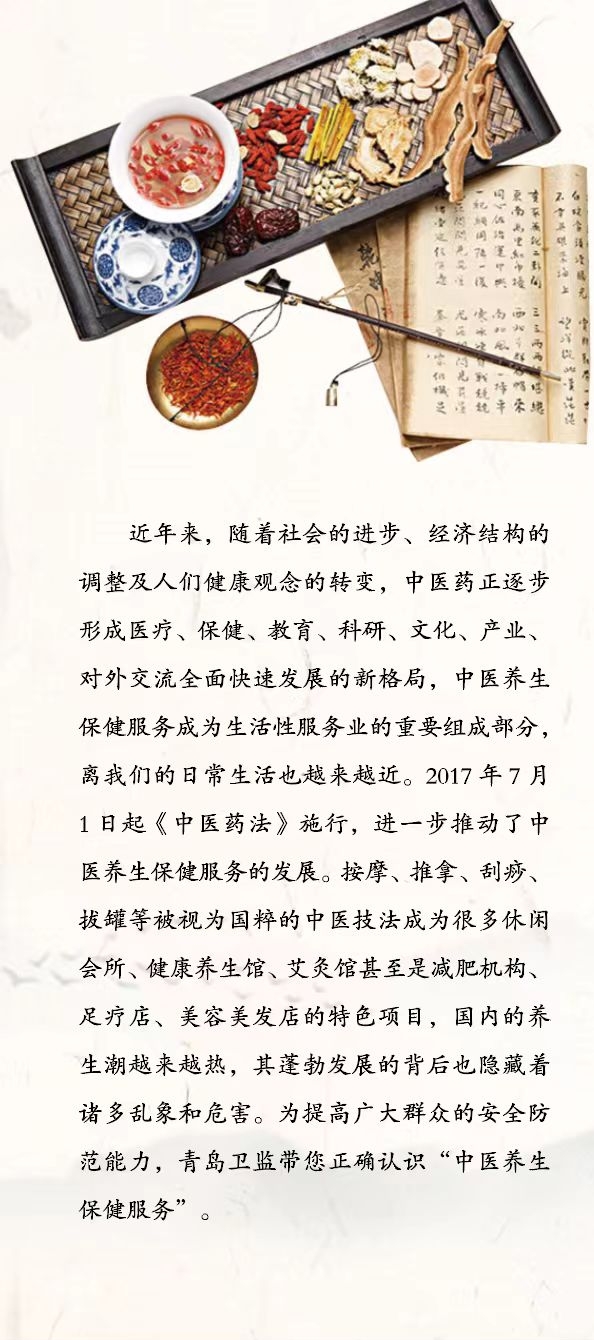 近年来，随着社会的进步、经济结构的
调整及人们健康观念的转变，中医药正逐步
形成医疗、保健、教育、科研、文化、产业、
对外交流全面快速发展的新格局，中医养生
保健服务成为生活性服务业的重要组成部分，
离我们的日常生活也越来越近。2017 年 7 月
1 日起《中医药法》施行，进一步推动了中
医养生保健服务的发展。按摩、推拿、刮痧、
拔罐等被视为国粹的中医技法成为很多休闲
会所、健康养生馆、艾灸馆甚至是减肥机构、
足疗店、美容美发店的特色项目，国内的养
生潮越来越热，其蓬勃发展的背后也隐藏着
诸多乱象和危害。为提高广大群众的安全防
范能力，青岛卫监带您正确认识“中医养生
保健服务”。